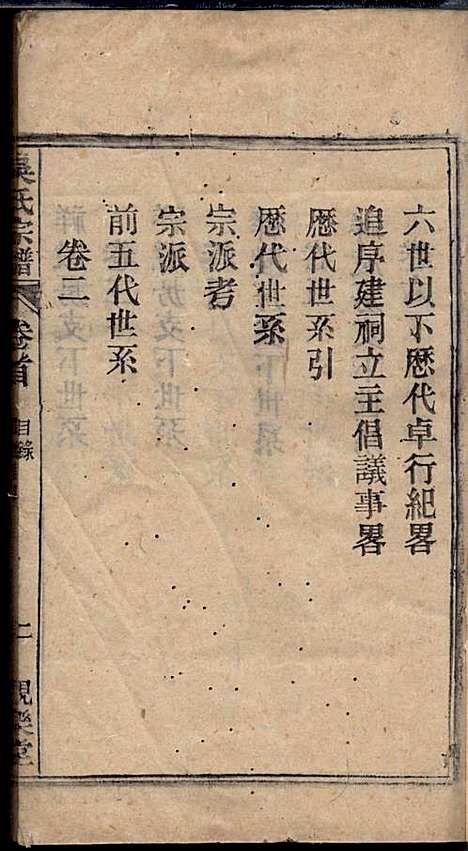 六世以下歷代卓行紀畧
追序建祠立主倡議事畧
歷代世系引
歷代世系
宗派考
宗派
前五代世系
卷三
吳氏宗譜 卷首 目錄 二